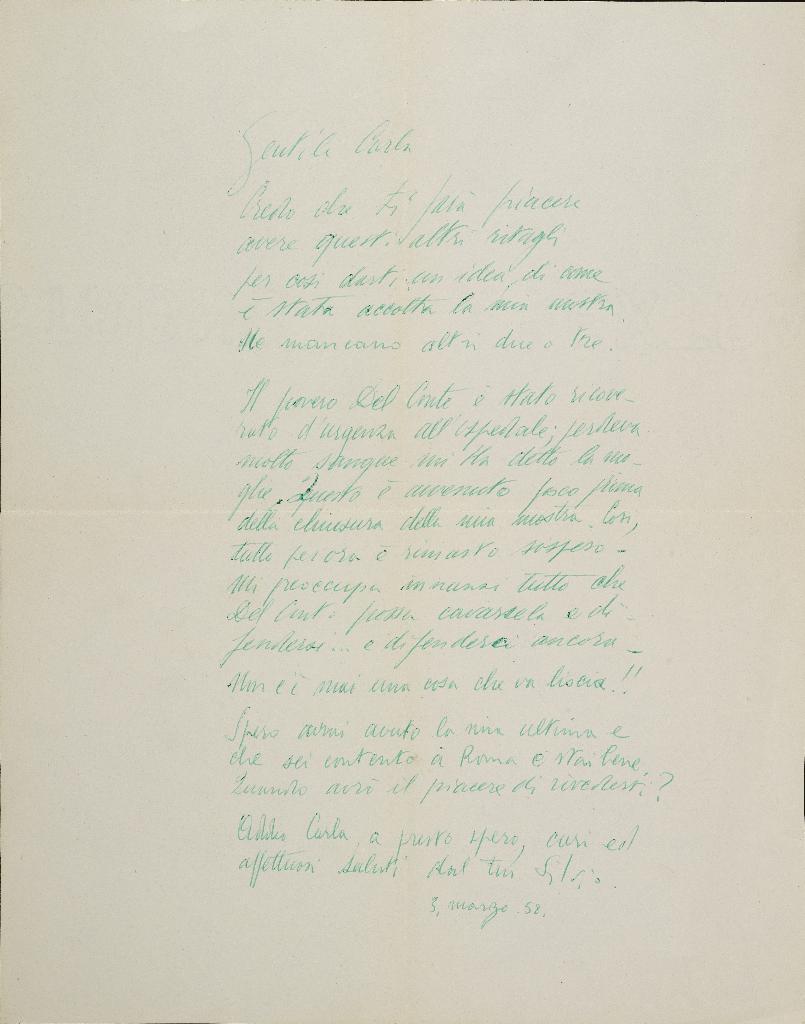 Gentile Carla
Credo che ti farà piacere
avere questi altri ritagli
per così darti un idea di come
è stata accolta la mia mostra.
Ne mancano altri due o tre.
Il povero Del Conte è stato ricove-
rato d'urgenza all'ospedale; perdeva
molto sangue mi ha detto la mo-
glie. Questo è avvenuto poco prima
della chiusura della mia mostra. Così,
tutto per ora è rimasto sospeso -
Mi preoccupa innanzi tutto che
Del Conte possa cavarsela e di-
fendersi... e difenderci ancora -
Non c'è mai una cosa che va liscia!!
Spero avrai avuto la mia ultima e
che sei contenta a Roma e stai bene.
Quando avrò il piacere di rivederti?
Addio Carla, a presto spero, cari ed
affettuosi saluti dal tuo Silvio.
3, marzo 52.